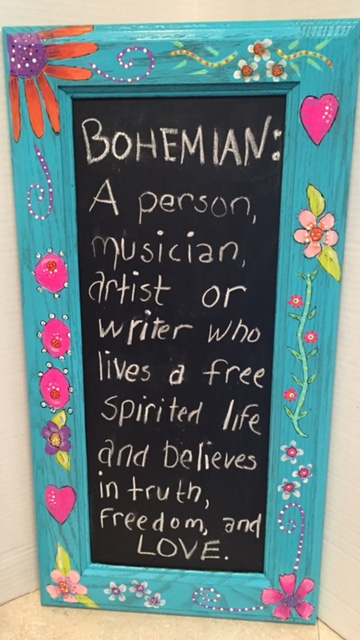 BOHEMIAN:
A person,
musician,
artist or
writer who
lives a free
spirited life
and believes
in truth,
freedom, and
LOVE.